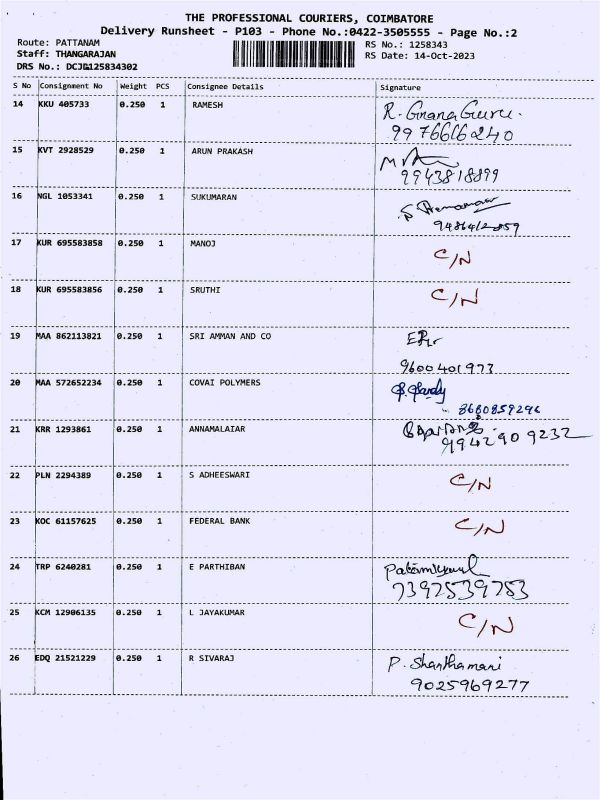 THE PROFESSIONAL COURIERS, COIMBATORE
Delivery Runsheet - P103 - Phone No.:0422-3505555 - Page No.:2
Route: PATTANAM
RS No.: 1258343
Staff: THANGARAJAN
RS Date: 14-Oct-2023
DRS No.:
S No Consignment No Weight PCS Consignee Details Signature
14 KKU 405733 0.250 1 RAMESH R. Gnana Guru.
9976616240
15 KVT 2928529 0.250 1 ARUN PRAKASH
9943818899
16 NGL 1053341 0.250 1 SUKUMARAN
9486412859
17 KUR 695583858 0.250 1 MANOJ C/N
18 KUR 695583856 0.250 1 SRUTHI C/N
19 MAA 862113821 0.250 1 SRI AMMAN AND CO
9600401973
20 MAA 572652234 0.250 1 COVAI POLYMERS
21 KRR 1293861 0.250 1 ANNAMALAIAR
9942909232
22 PLN 2294389 0.250 1 S ADHEESWARI C/N
23 KOC 61157625 0.250 1 FEDERAL BANK C/N
24 TRP 6240281 0.250 1 E PARTHIBAN
7397539753
25 KCM 12906135 0.250 1 L JAYAKUMAR C/N
26 EDQ 21521229 0.250 1 R SIVARAJ P. Shanthamani
9025969277